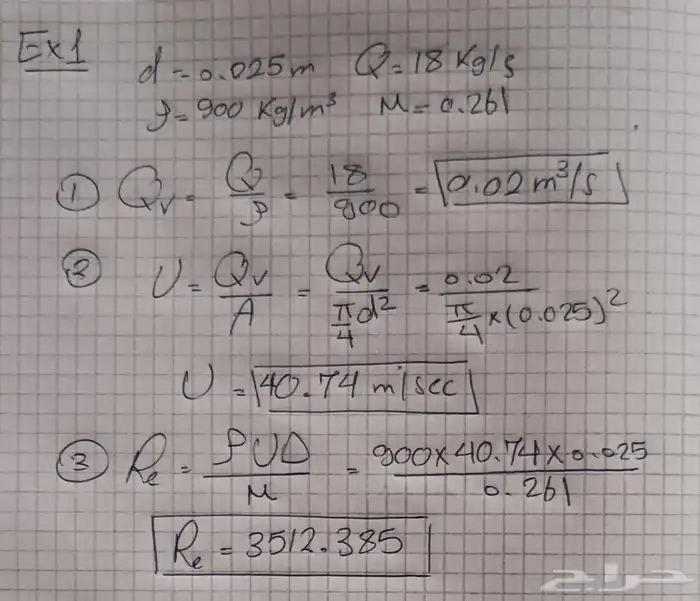 Ex1
d = 0.025 m Q = 18 Kg/s
ρ = 900 Kg/m³ M = 0.261
① Qv = Q/ρ = 18/900 = 0.02 m³/s
② U = Qv/A = Qv/(π/4 d²) = 0.02/(π/4 × (0.025)²)
U = 40.74 m/sec
③ Re = ρUD/M = 900 × 40.74 × 0.025/0.261
Re = 3512.385
حراج